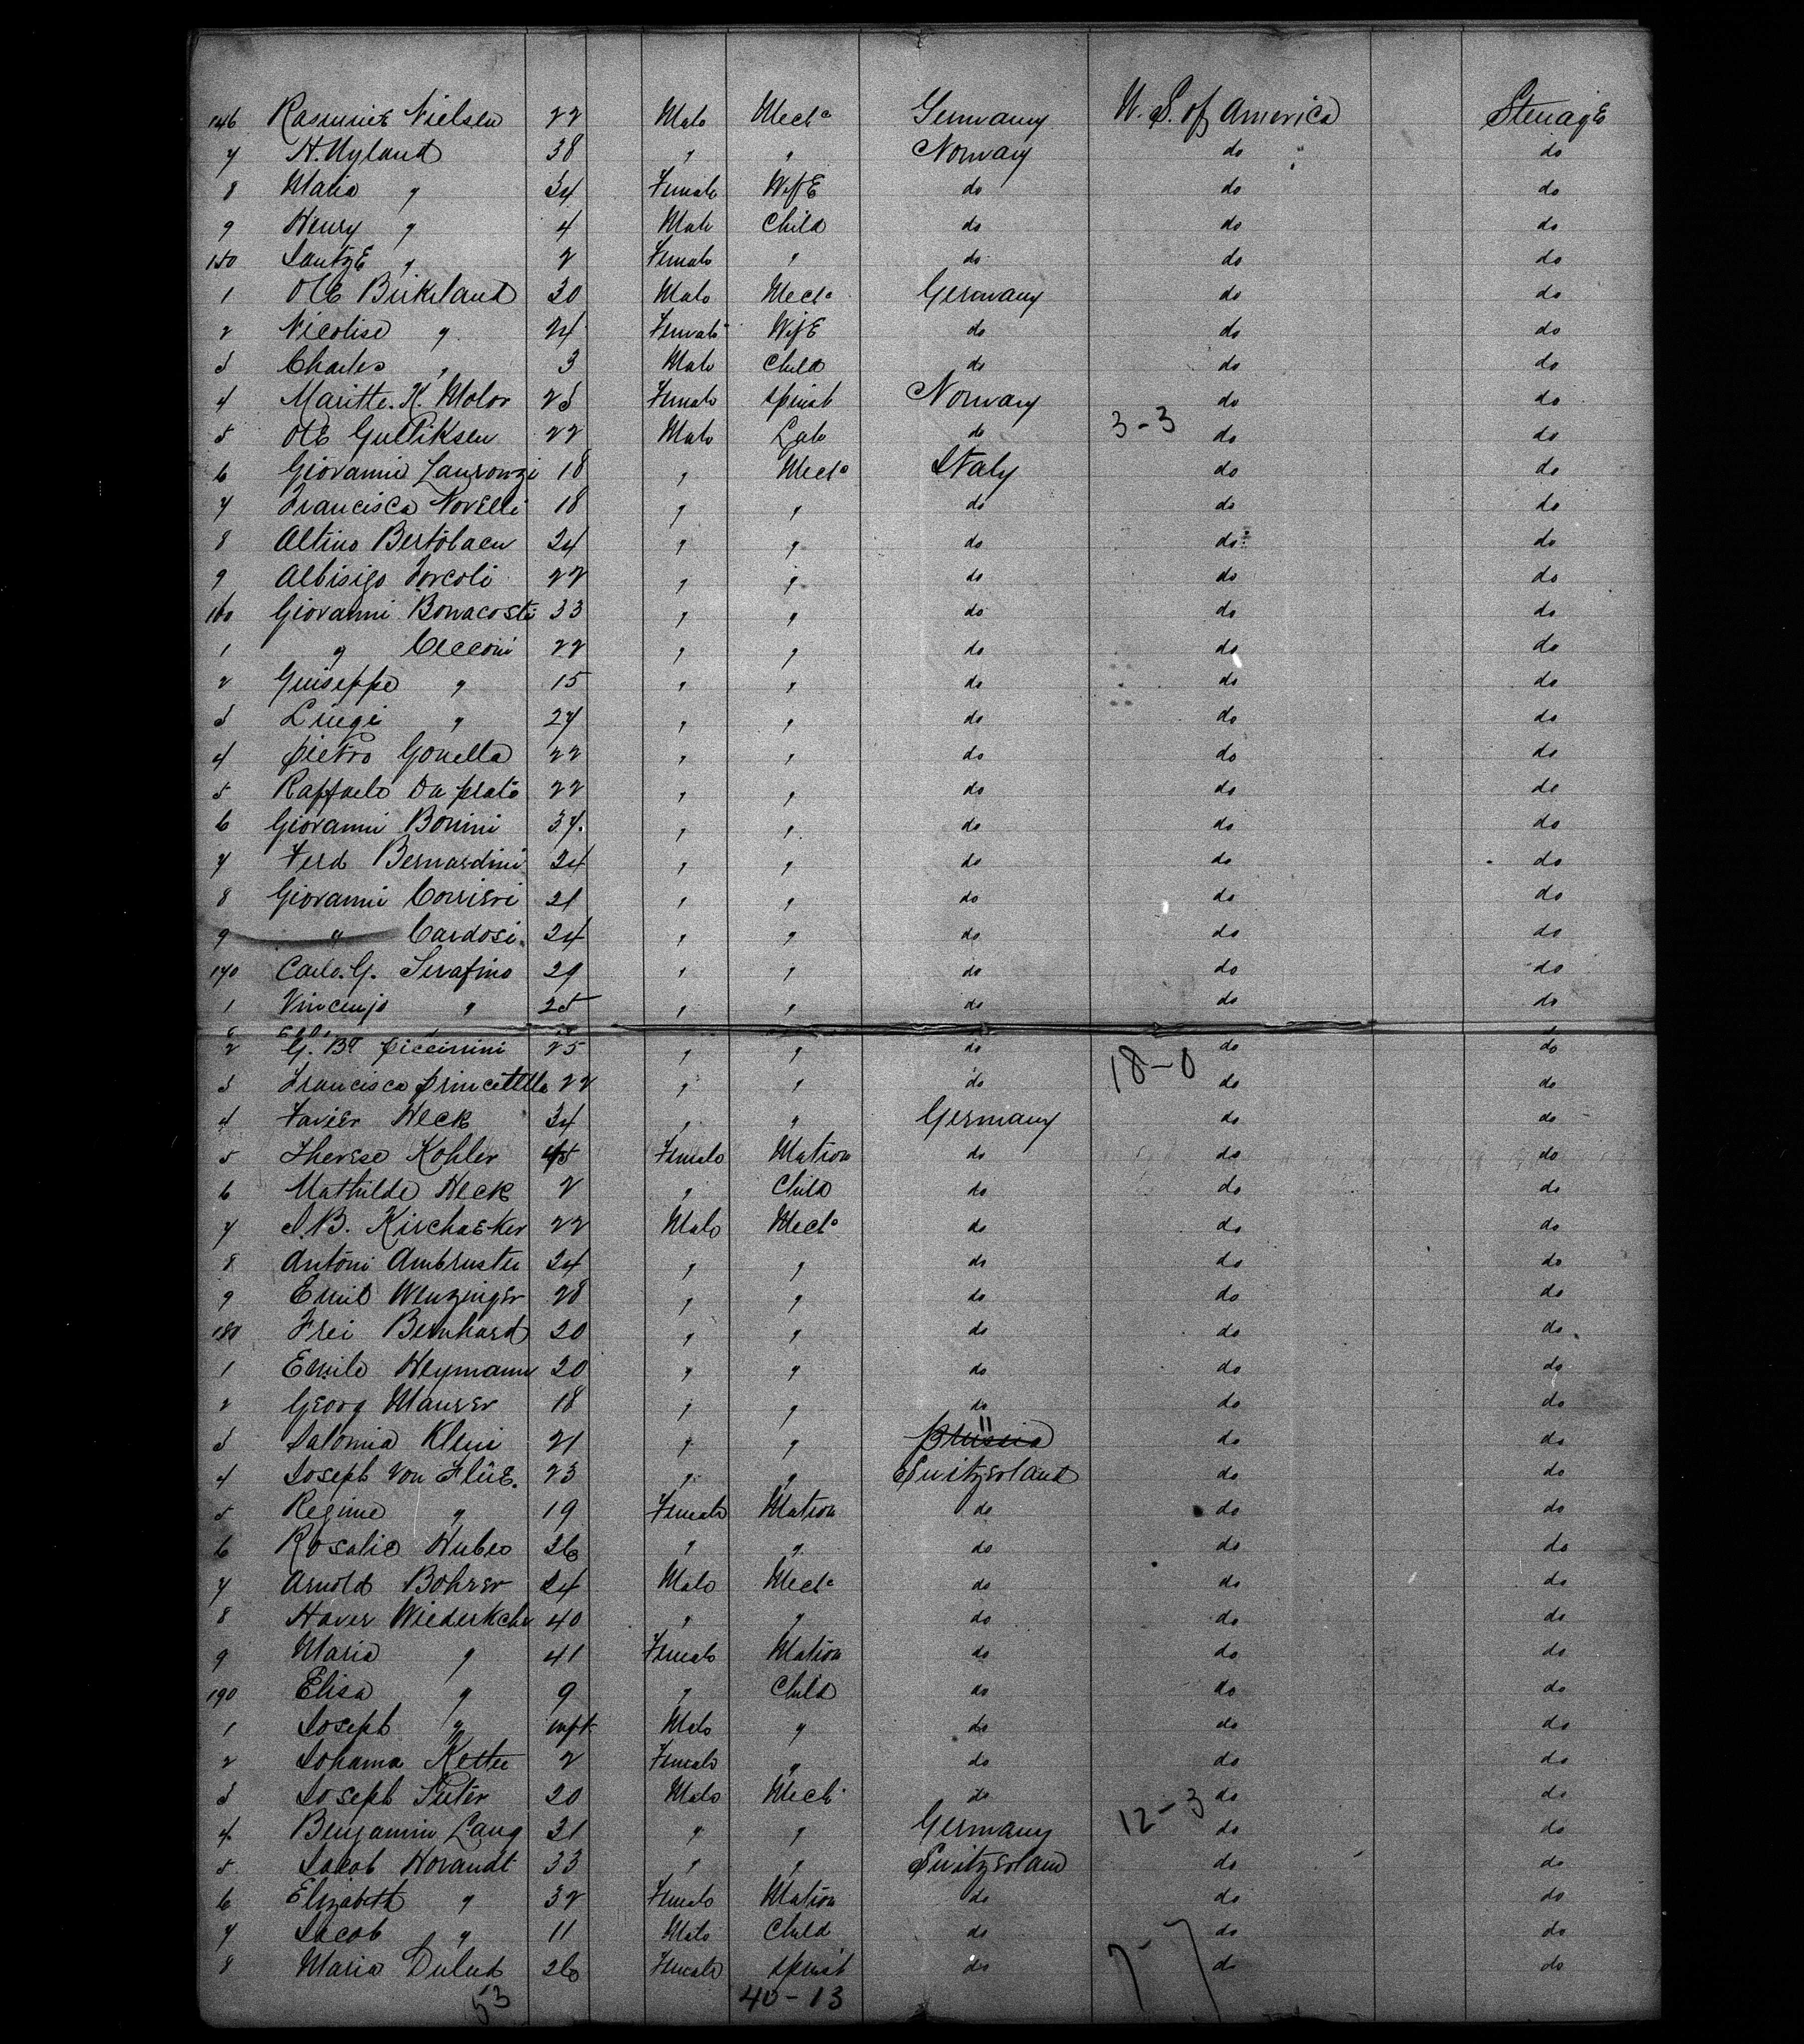 146 Rasmine Nielsen 22 Male Mech Germany U. S. of America Steerage
7 H. Nyland 38 " " Norway do do
8 Maria " 34 Female Wife do do do
9 Henry " 4 Male Child do do do
150 " 2 Female " do do do
1 Ole Birkeland 30 Male Mech Germany do do
2 Nicolise " 24 Female Wife do do do
3 Charles " 3 Male Child do do do
4 Maritte. K. Molor 23 Female Spinst Norway do do
5 Ole Gulliksen 22 Male Lab do 3-3 do do
6 Giovannie Lauronzi 18 " Mech Italy do do
7 Francisca Novelli 18 " " do do do
8 Altino Bertolaen 24 " " do do do
9 Albisigo Forcoli 22 " " do do do
160 Giovanni Bonacosti 33 " " do do do
1 " Cecconi 22 " " do do do
2 Guiseppe " 15 " " do do do
3 Luigi " 27 " " do do do
4 Pietro Gonella 22 " " do do do
5 Raffaelo Da prato 22 " " do do do
6 Giovanni Bonini 37. " " do do do
7 Ferd Bernardini 24 " " do do do
8 Giovanni Corrieri 21 " " do do do
9 " Cardosi. 24 " " do do do
170 Carlo. G. Serafino 29 " " do do do
1 Vincenjo " 25 " " do do do
2 G. Ba Piccinini 25 " " do do do
3 Francisca Princetella 22 " " do 18-0 do do
4 Favier Heck 34 " " Germany do do
5 Therese Kohler 45 Female Matron do do do
6 Mathilde Heck 2 " Child do do do
7 J. B. Kirchaeker 22 Male Mech do do do
8 Antoni Ambruster 24 " " do do do
9 Emil Wenzinger 28 " " do do do
180 Frei Bernhard 20 " " do do do
1 Emile Heymann 20 " " do do do
2 Georg Maurer 18 " " do do do
3 Salomia Klein 21 " " Prussia " do do
4 Joseph von Flüe. 23 " " Switzerland do do
5 Regine " 19 Female Matron do do do
6 Rosalie Huber 26 " " do do do
7 Arnold Bohrer 24 Male Mech do do do
8 Xaver Wiederkehr 40 " " do do do
9 Maria " 41 Female Matron do do do
190 Elisa " 9 " Child do do do
1 Joseph " inft Male " do do do
2 Johama 2 Female " do do do
3 Joseph Suter 20 Male Mech do do do
4 Benjamin Lang 31 " " Germany 12-3 do do
5 Jacob Horandt 33 " " Switzerland do do
6 Elizabeth " 32 Female Matron do do do
7 Jacob " 11 Male Child do do do
8 Maria Dulut 26 Female Spinst do 7-7 do do
53 40-13